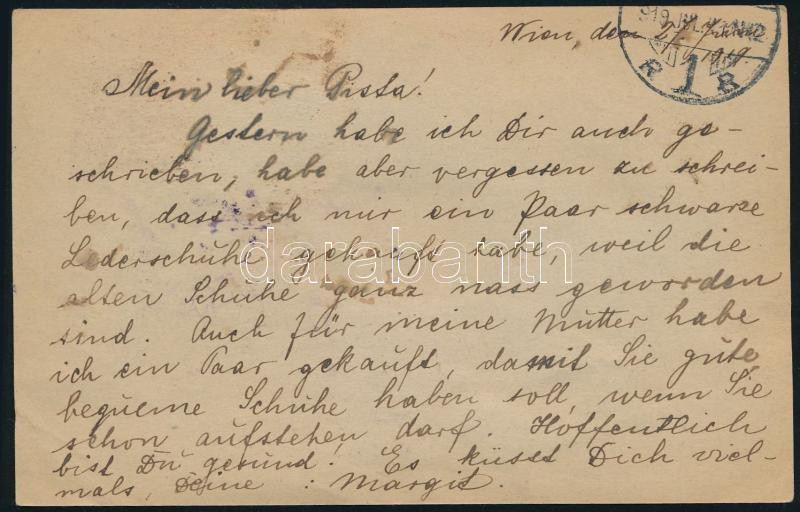 Wien, den 27. Juni
1919.
Mein lieber Pista!
Gestern habe ich Dir auch ge-
schrieben, habe aber vergessen zu schrei-
ben, dass ich mir ein Paar schwarze
Lederschuhe gekauft habe, weil die
alten Schuhe ganz nass geworden
sind. Auch für meine Mutter habe
ich ein Paar gekauft, damit Sie gute,
bequeme Schuhe haben soll, wenn Sie
schon aufstehen darf. Hoffentlich
bist Du gesund! Es küsst Dich viel-
mals, Deine : Margit.
R 1 B
darabanth